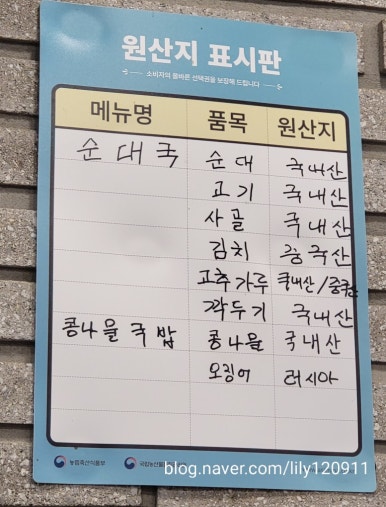 원산지 표시판
소비자의 올바른 선택권을 보장해 드립니다
메뉴명 품목 원산지
순대국 순대 국내산
고기 국내산
사골 국내산
김치 중국산
고추가루 국내산/중국산
깍두기 국내산
콩나물국밥 콩나물 국내산
오징어 러시아
농림축산식품부 국립농산물
blog.naver.com/lily120911